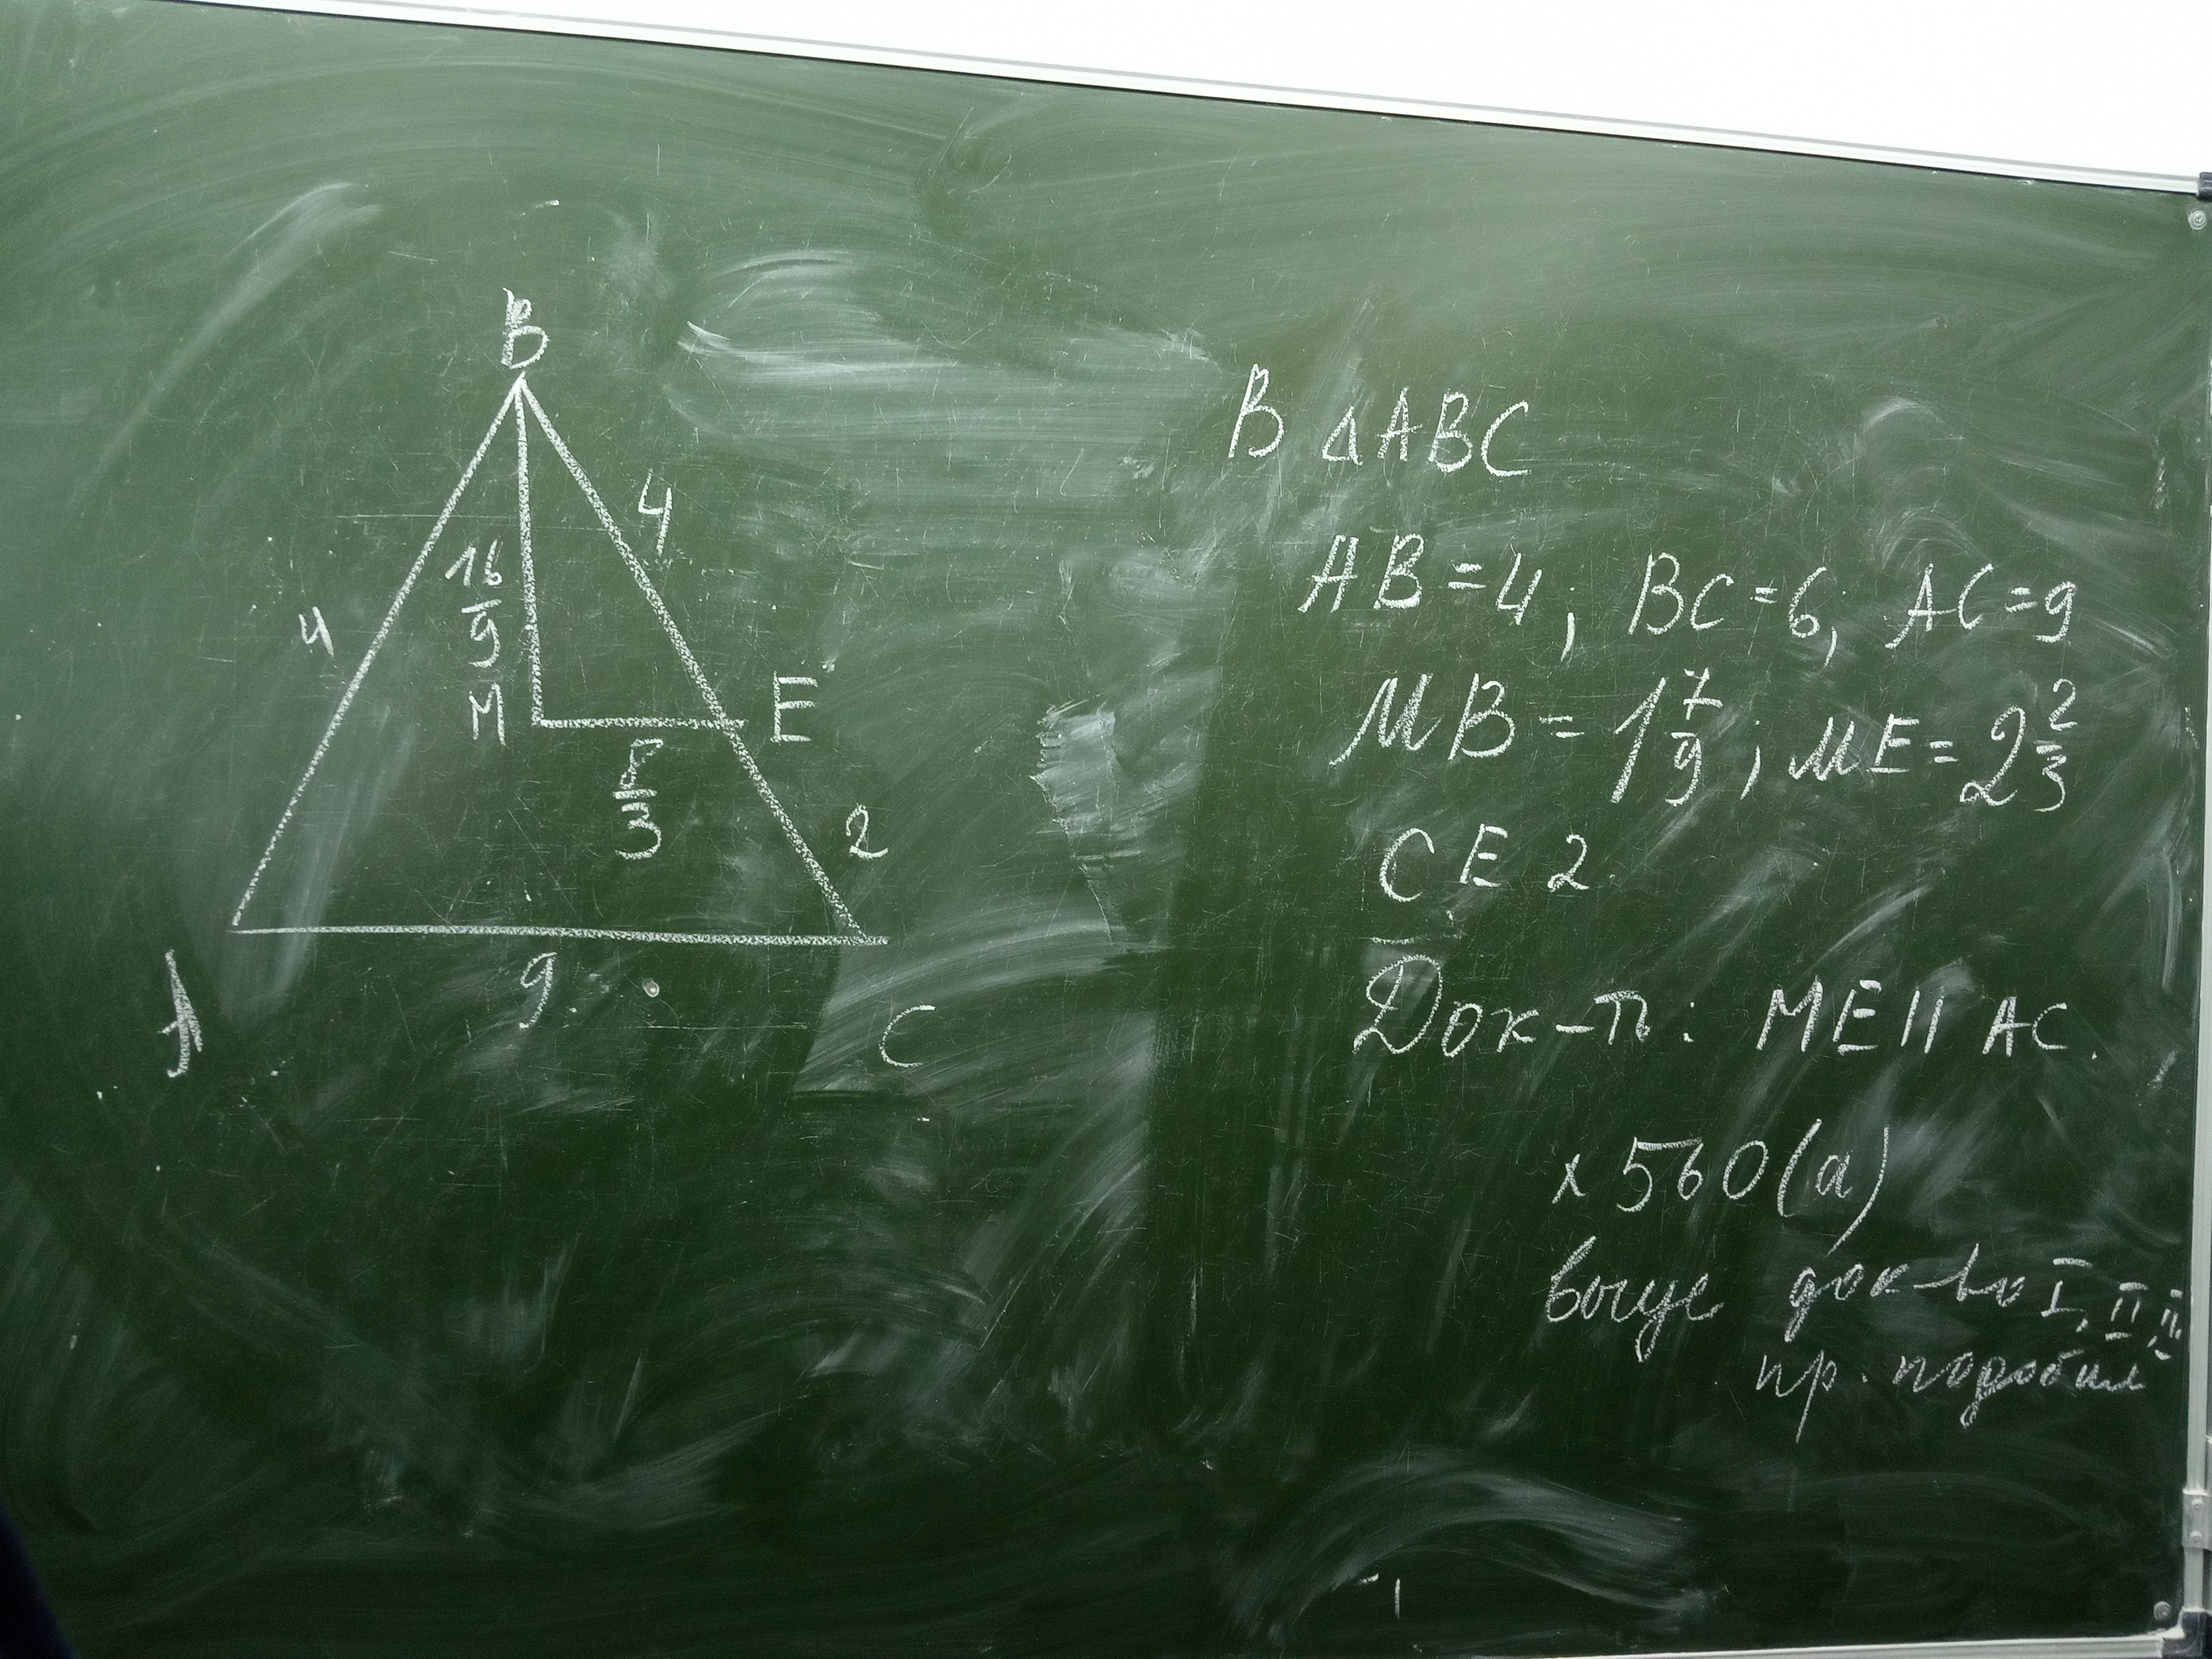 B
4
4
16/9
M
E
8/3
2
A
9
C
В △ABC
AB=4; BC=6; AC=9
MB=1 7/9; ME=2 2/3
CE 2
Док-ть: ME || AC.
× 560(а)
док-во I, II,
пр. подобия